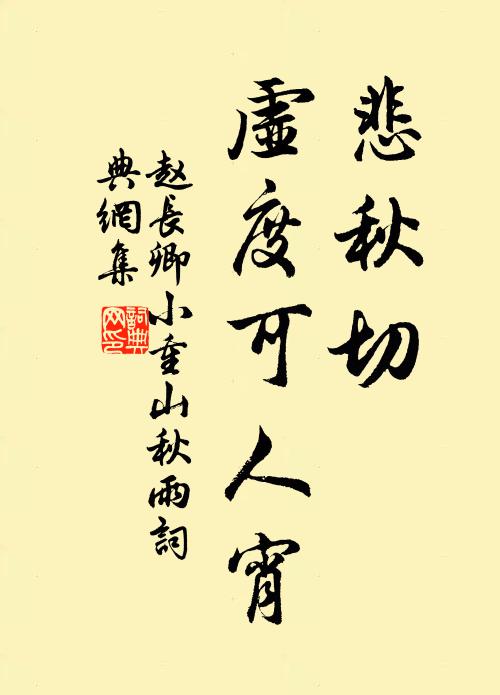 悲秋切
虚度可人宵
赵長卿小重山秋雨詞
典網集
詞典
网印